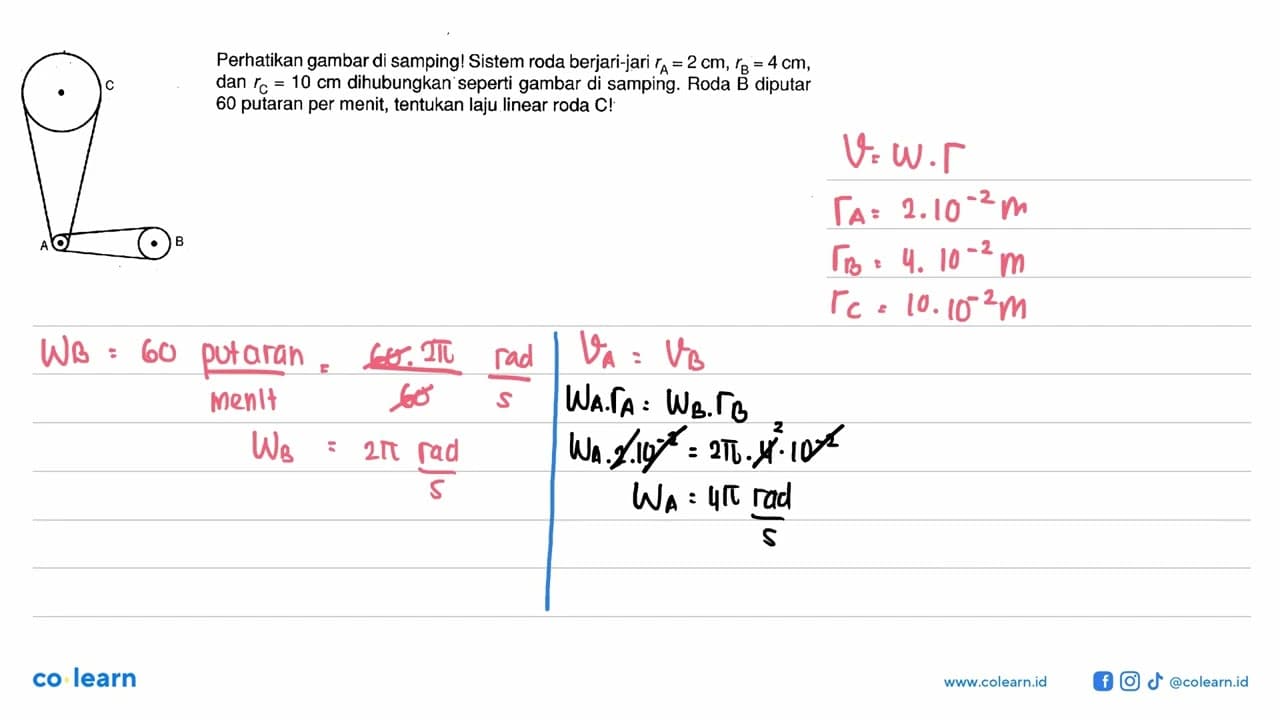 Perhatikan gambar di samping! Sistem roda berjari-jari r_A = 2 cm, r_B = 4 cm,
dan r_C = 10 cm dihubungkan seperti gambar di samping. Roda B diputar
60 putaran per menit, tentukan laju linear roda C!
C
A
B
V = W . r
r_A = 2.10^-2 m
r_B = 4. 10^-2 m
r_C = 10.10^-2 m
W_B = 60 putaran/menit = 60. 2π/60 rad/s
W_B = 2π rad/s
V_A = V_B
W_A.r_A = W_B.r_B
W_A.2.10^-2 = 2π.4^2.10^-2
W_A = 4π rad/s
co learn
www.colearn.id
@colearn.id